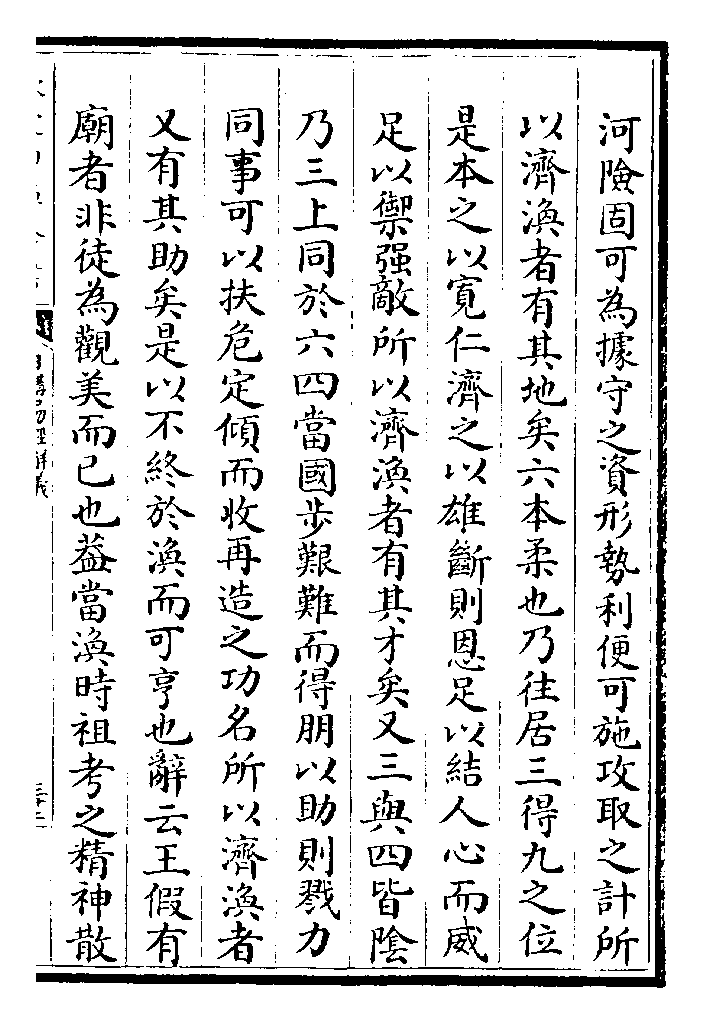 河險固可為據守之資形勢利便可施攻取之計所
以濟渙者有其地矣六本柔也乃往居三得九之位
是本之以寛仁濟之以雄斷則恩足以結人心而威
足以禦强敵所以濟渙者有其才矣又三與四皆陰
乃三上同於六四當國步艱難而得朋以助則戮力
同事可以扶危定傾而收再造之功名所以濟渙者
又有其助矣是以不終於渙而可亨也辭云王假有
廟者非徒為觀美而已也葢當渙時祖考之精神散
日講易經解義